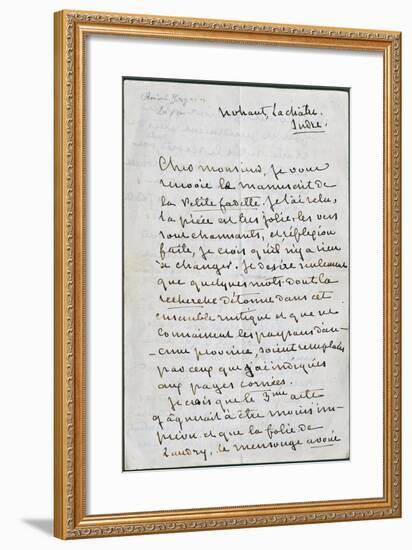 Nohant, Lachâtre
Indre.
Cher monsieur, je vous
renvoie le manuscrit de
la Petite fadette. je l'ai relu,
la pièce est très jolie, les vers
sont charmants, et réflexion
faite, je crois qu'il n'y a rien
à changer. je desire seulement
que quelques mots dont la
recherche détonne dans cet
ensemble rustique et que ne
connaissent les paysans d'au-
-cune province, soient remplacés
par ceux que j'ai indiqués
aux pages cornées.
je crois que le 3me acte
gagnerait à être moins im-
prévu et que la folie de
Landry, le mensonge avoué